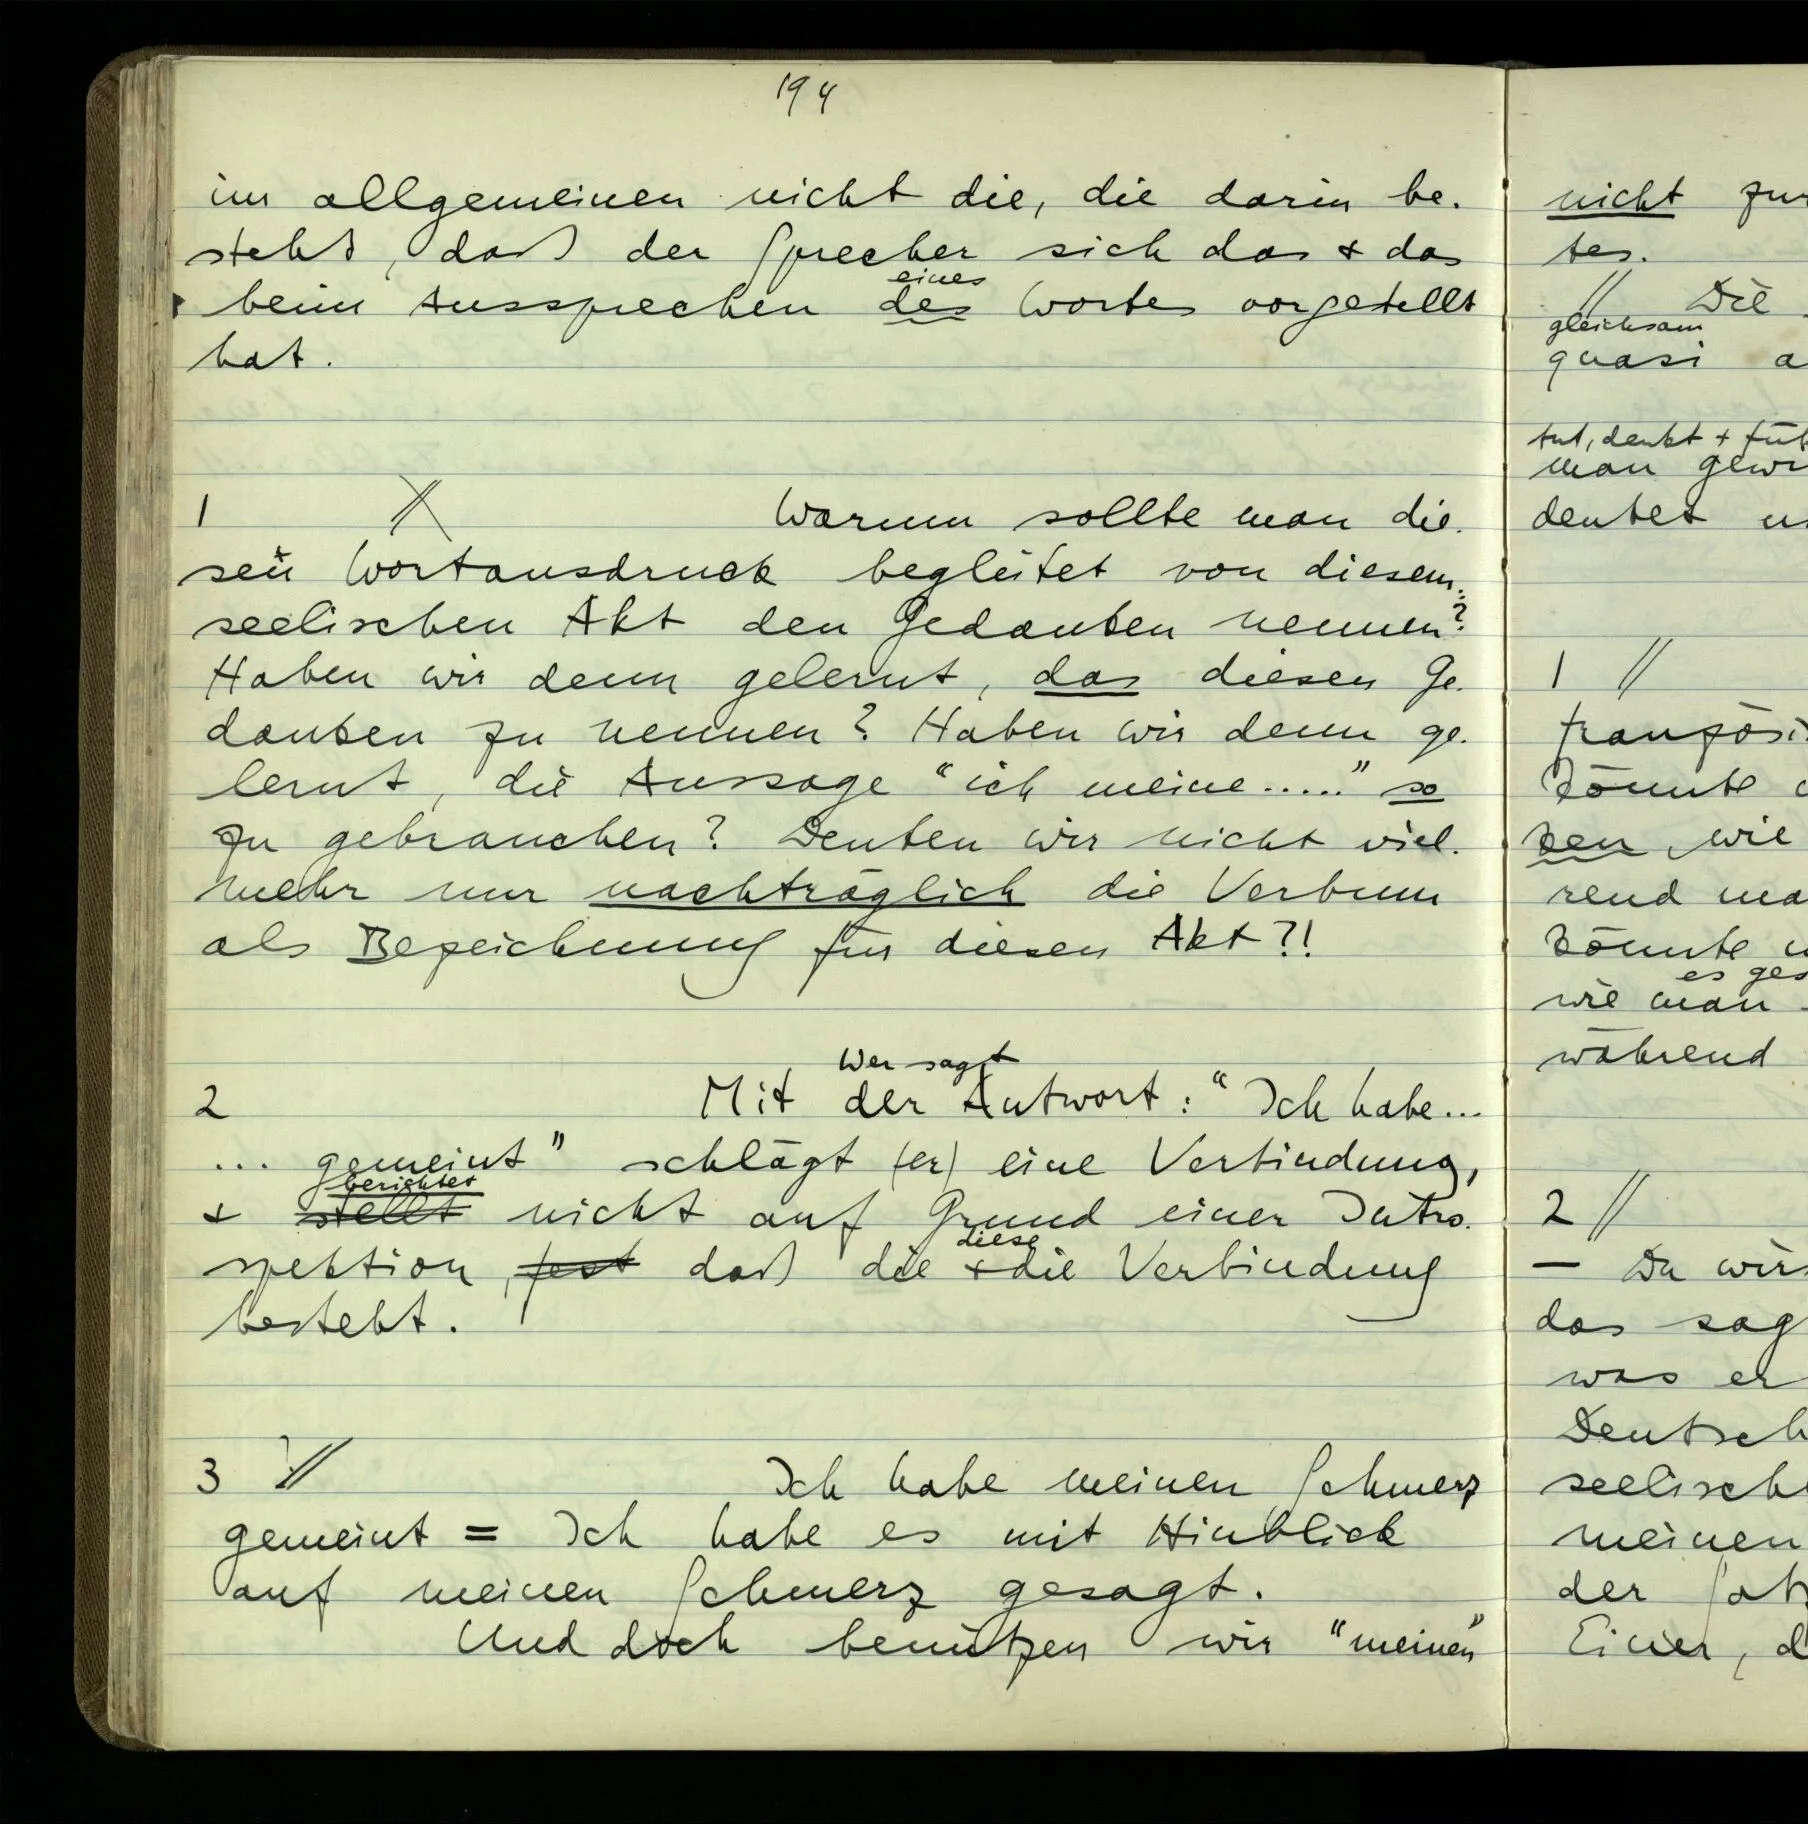 194
im allgemeinen nicht die, die darin be-
steht, daß der Sprecher sich das + das
eines
beim Aussprechen des Wortes vorgestellt
hat.
1 // Warum sollte man die-
sen Wortausdruck begleitet von diesem
seelischen Akt den Gedanken nennen?
Haben wir denn gelernt, das diesen Ge-
danken zu nennen? Haben wir denn ge-
lernt, die Aussage “ich meine.....” so
zu gebrauchen? Deuten wir nicht viel-
mehr nur nachträglich die Verbum
als Bezeichnung für diesen Akt?!
Wer sagt
2 Mit der Antwort: “Ich habe...
... gemeint” schlägt (er) eine Verbindung,
berichtet
+ stellt nicht auf Grund einer Intro-
diese
spektion, fest daß die + die Verbindung
besteht.
3 // Ich habe meinen Schmerz
gemeint = Ich habe es mit Hinblick
auf meinen Schmerz gesagt.
Und doch benützen wir “meinen”
nicht zur
tes.
// Die
gleichsam
quasi a
tut, denkt + füh
man gewi
deutet un
1 //
französi
könnte
sen, wie
rend ma
könnte
es ges
wie man
während
2 //
– Du wirs
das sag
was er
Deutsch
seelische
meinen
der Satz
Einer, d